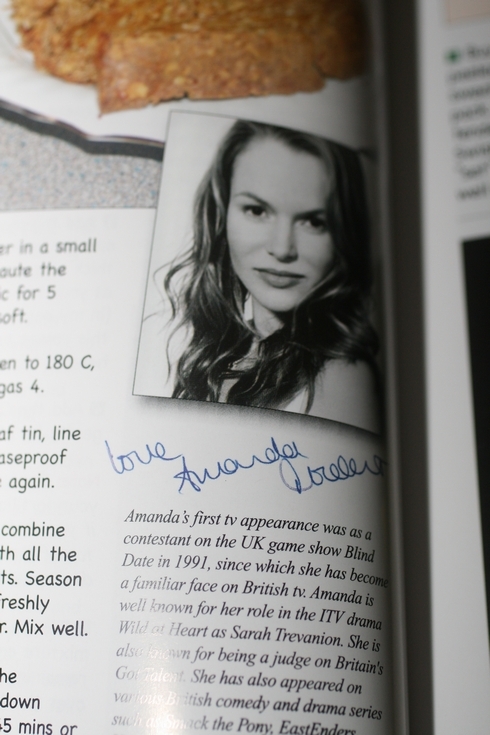 er in a small
aute the
c for 5
soft.
en to 180 C,
gas 4.
af tin, line
aseproof
again.
combine
th all the
ts. Season
freshly
r. Mix well.
he
down
45 mins or
love
Amanda
Amanda's first tv appearance was as a
contestant on the UK game show Blind
Date in 1991, since which she has become
a familiar face on British tv. Amanda is
well known for her role in the ITV drama
Wild at Heart as Sarah Trevanion. She is
also known for being a judge on Britain's
Got Talent. She has also appeared on
various British comedy and drama series
such as Smack the Pony, EastEnders